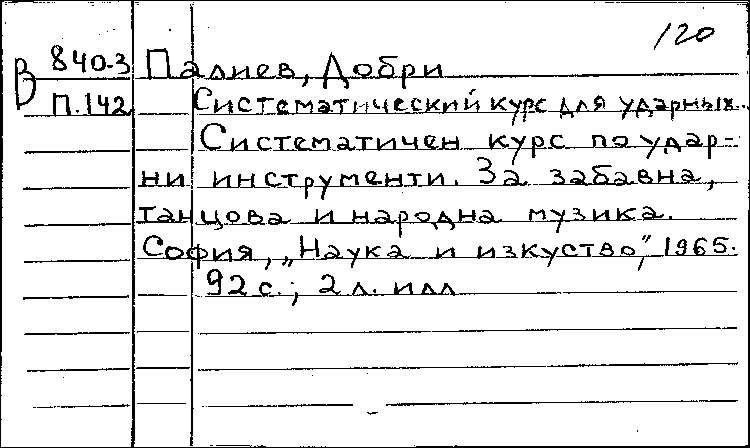 120
В 840-3 Палиев, Добри
П.142 Систематический курс для ударных..
Систематичен курс по удар-
ни инструменти. За забавна,
танцова и народна музика.
София, „Наука и изкуство", 1965.
92 с.; 2 л. илл